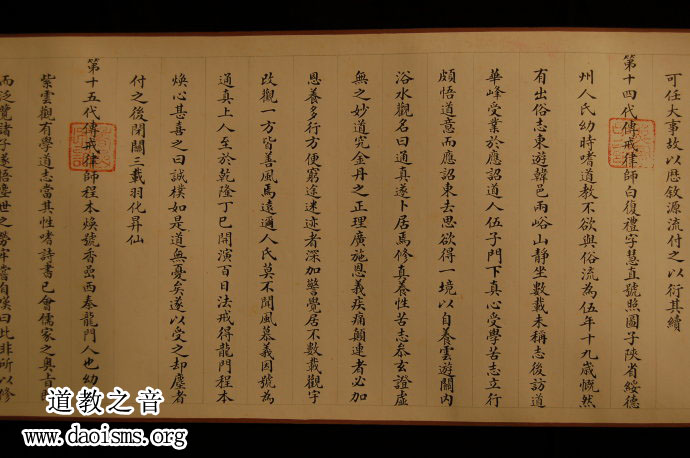 可任大事故以歷敘源流付之以衍其續
第十四代傳戒律師白復禮字慧直號照圖子陝省綏德
州人氏幼時嗜道教不欲與俗流為伍年十九歲慨然
有出俗志東遊韓邑兩峪山靜坐數載未稱志後訪道
華峰受業於應認道人伍子門下真心受學苦志立行
頗悟道意而應認東去思欲得一境以自養雲遊關內
浴水觀名曰通真遂卜居焉修真養性苦志叅玄證虛
無之妙道究金丹之正理廣施恩義疾痛顛連者必加
恩養多行方便窮途迷迹者深加警覺居不數載觀宇
改觀一方皆善風焉遠邇人氏莫不聞風慕義因號為
通真上人至於乾隆丁巳開演百日法戒得龍門程本
煥心甚喜之曰誠樸如是道無憂矣遂以受之却塵者
付之後閉關三載羽化昇仙
第十五代傳戒律師程本煥號香嵒西秦龍門人也幼
紫雲觀有學道志當其性嗜詩書已會儒家之奧旨
而泛覽諸子遂悟塵世之勞牢當自嘆曰此非所以修
道教之音
www.daoisms.org